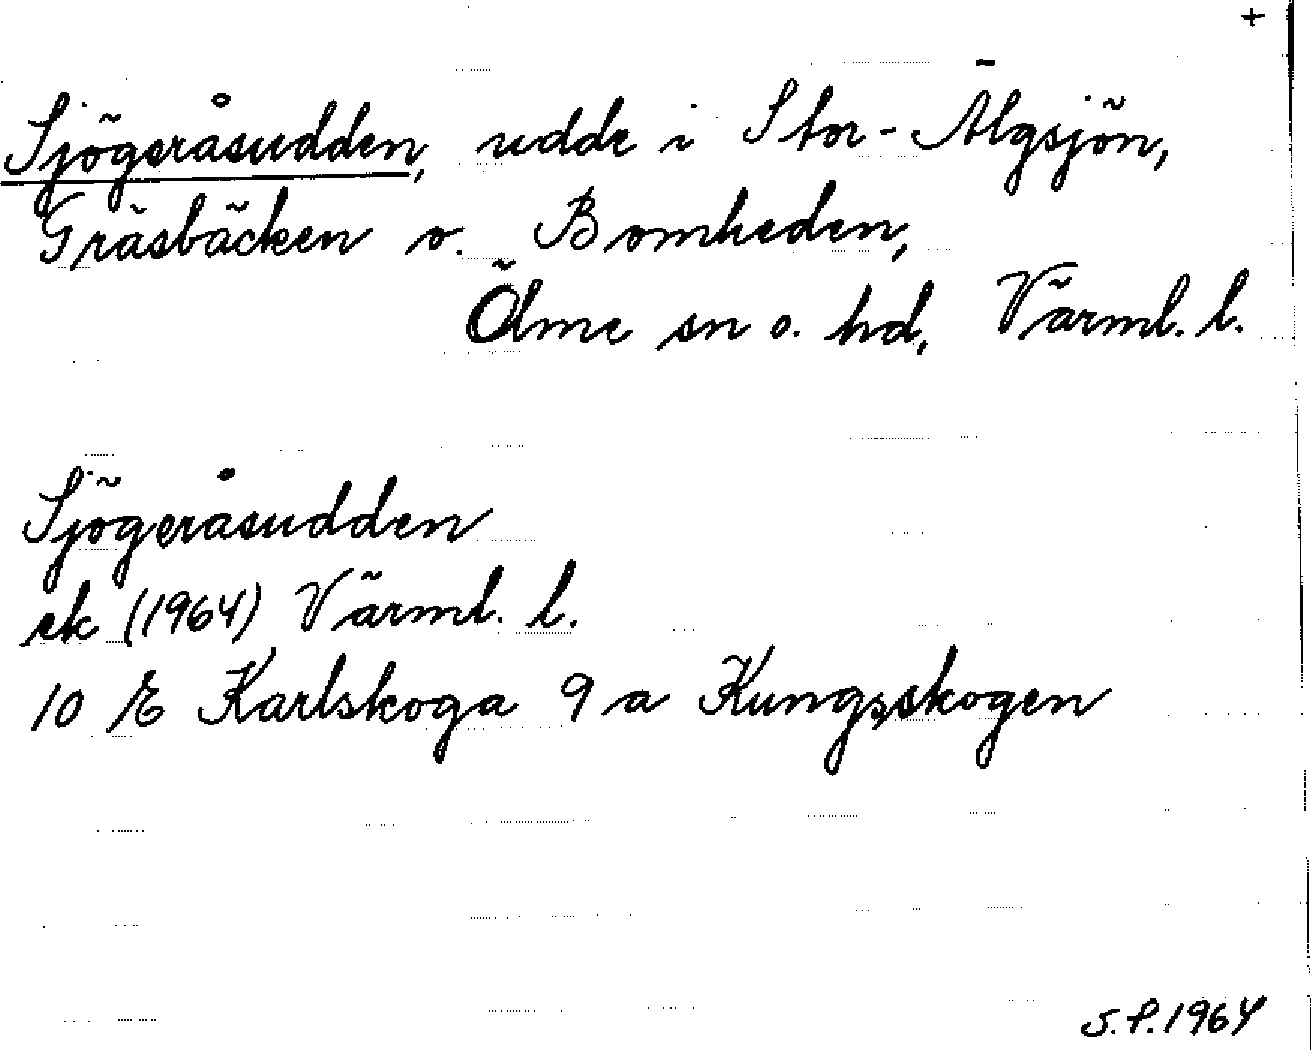 +
Sjögeråsudden, udde i Stor-Älgsjön,
Gräsbäcken o. Bomheden,
Ölme sn o. hd, Värml. l.
Sjögeråsudden
ek (1964) Värml. l.
10 E Karlskoga 9 a Kungsskogen
S.P. 1964